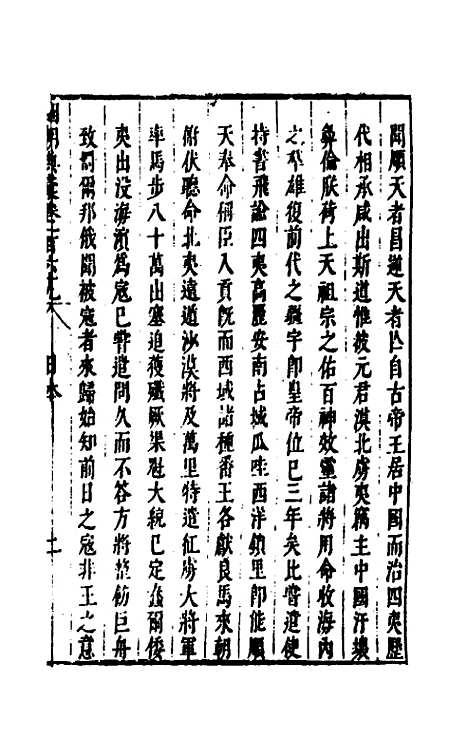 聞順天者昌逆天者亾自古帝王居中國而治四夷歷
代相承咸出斯道惟彼元君漠北虜夷竊主中國汙壞
彝倫朕荷上天祖宗之佑百神效靈諸將用命收海內
之羣雄復前代之疆宇卽皇帝位已三年矣比嘗遣使
持書飛諭四夷高麗安南占城瓜哇西洋鎖里卽能順
天奉命稱臣入貢旣而西域諸種番王各獻良馬來朝
俯伏聽命北夷遠遁沙漠將及萬里特遣征虜大將軍
率馬步八十萬出塞追獲殲厥渠魁大統已定蠢爾倭
夷出没海濵爲寇已嘗遣問久而不答方將整飭巨舟
致罰爾邦俄聞被寇者來歸始知前日之寇非王之意
卷一百六十九 日本 二